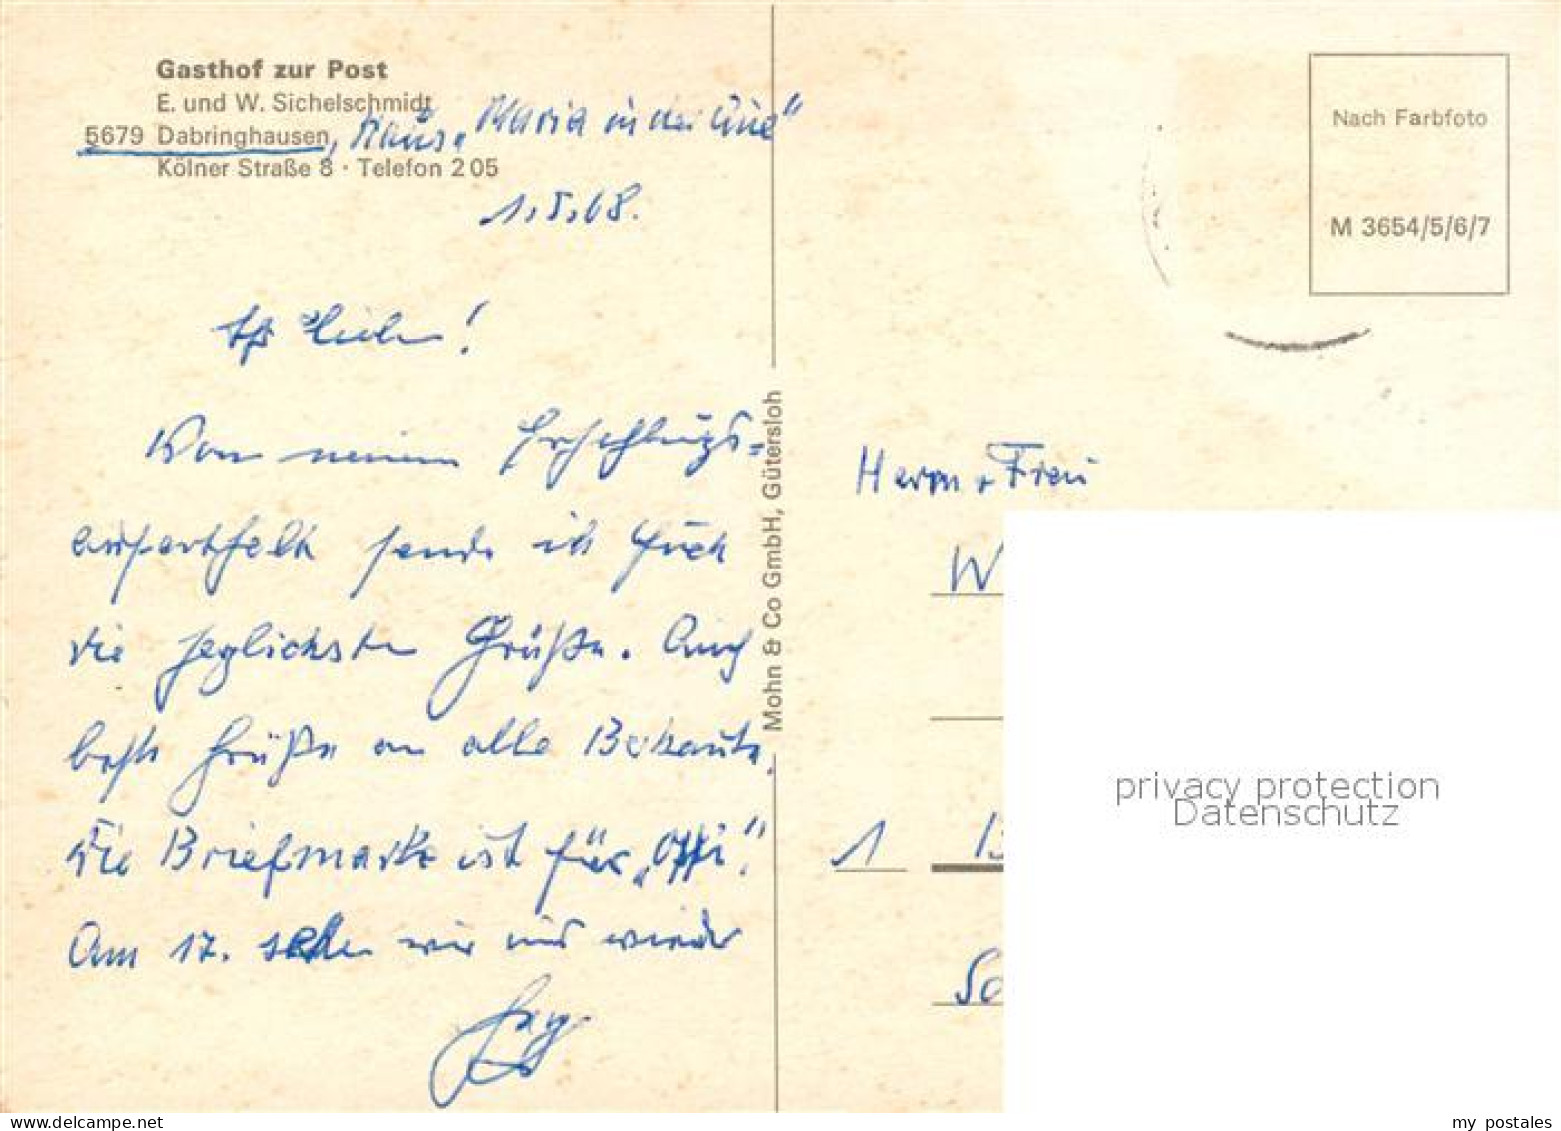 Gasthof zur Post
E. und W. Sichelschmidt
5679 Dabringhausen, Haus „Maria in der Aue"
Kölner Straße 8 · Telefon 2 05
1.5.68.
Ihr Lieben!
Von meinem Erholungs-
aufenthalt sende ich Euch
die herzlichsten Grüße. Auch
beste Grüße an alle Bekannte.
Die Briefmarke ist für „Offi".
Am 17. sehen wir uns wieder
Mohn & Co GmbH, Gütersloh
Nach Farbfoto
M 3654/5/6/7
Herrn + Frau
W
1 B
So
privacy protection
Datenschutz
my postales